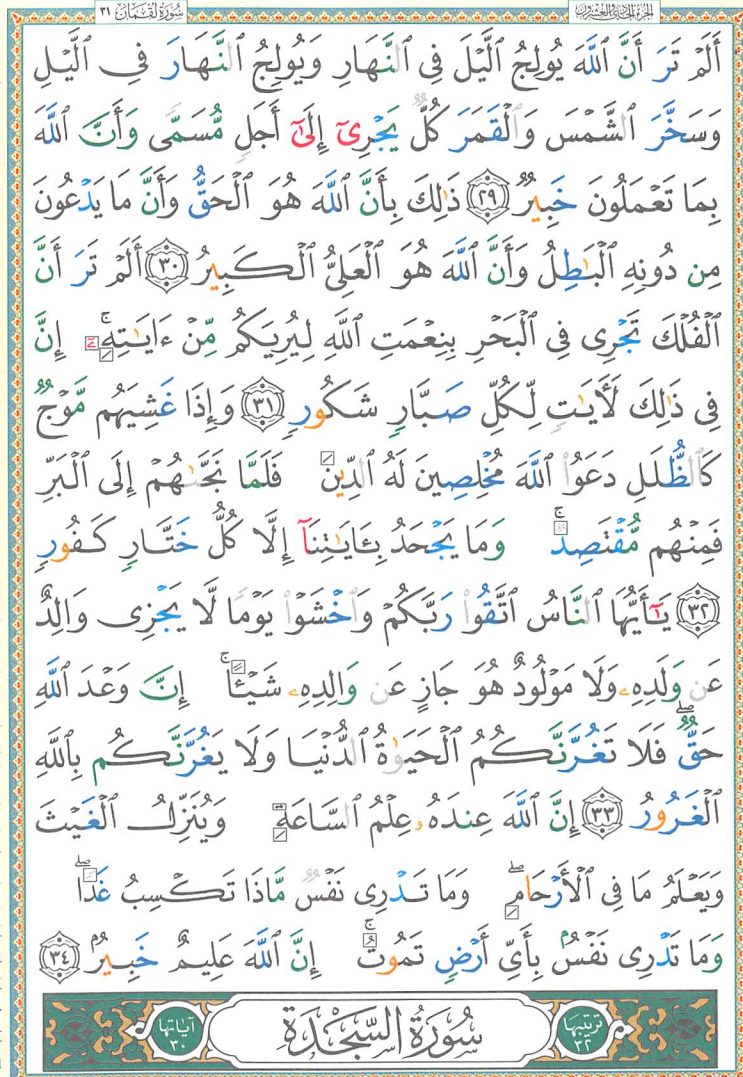 الجزء الحادي والعشرون سُورَةُ لُقْمَان ٣١
أَلَمْ تَرَ أَنَّ ٱللَّهَ يُولِجُ ٱلَّيْلَ فِى ٱلنَّهَارِ وَيُولِجُ ٱلنَّهَارَ فِى ٱلَّيْلِ
وَسَخَّرَ ٱلشَّمْسَ وَٱلْقَمَرَ كُلٌّ يَجْرِىٓ إِلَىٰٓ أَجَلٍ مُّسَمًّى وَأَنَّ ٱللَّهَ
بِمَا تَعْمَلُونَ خَبِيرٌ ٢٩ ذَٰلِكَ بِأَنَّ ٱللَّهَ هُوَ ٱلْحَقُّ وَأَنَّ مَا يَدْعُونَ
مِن دُونِهِ ٱلْبَٰطِلُ وَأَنَّ ٱللَّهَ هُوَ ٱلْعَلِىُّ ٱلْكَبِيرُ ٣٠ أَلَمْ تَرَ أَنَّ
ٱلْفُلْكَ تَجْرِى فِى ٱلْبَحْرِ بِنِعْمَتِ ٱللَّهِ لِيُرِيَكُم مِّنْ ءَايَٰتِهِۦٓ ۚ إِنَّ
فِى ذَٰلِكَ لَءَايَٰتٍ لِّكُلِّ صَبَّارٍ شَكُورٍ ٣١ وَإِذَا غَشِيَهُم مَّوْجٌ
كَٱلظُّلَلِ دَعَوُا۟ ٱللَّهَ مُخْلِصِينَ لَهُ ٱلدِّينَ فَلَمَّا نَجَّىٰهُمْ إِلَى ٱلْبَرِّ
فَمِنْهُم مُّقْتَصِدٌ ۚ وَمَا يَجْحَدُ بِـَٔايَٰتِنَآ إِلَّا كُلُّ خَتَّارٍ كَفُورٍ
٣٢ يَٰٓأَيُّهَا ٱلنَّاسُ ٱتَّقُوا۟ رَبَّكُمْ وَٱخْشَوْا۟ يَوْمًا لَّا يَجْزِى وَالِدٌ
عَن وَلَدِهِۦ وَلَا مَوْلُودٌ هُوَ جَازٍ عَن وَالِدِهِۦ شَيْـًٔا ۚ إِنَّ وَعْدَ ٱللَّهِ
حَقٌّ ۖ فَلَا تَغُرَّنَّكُمُ ٱلْحَيَوٰةُ ٱلدُّنْيَا وَلَا يَغُرَّنَّكُم بِٱللَّهِ
ٱلْغَرُورُ ٣٣ إِنَّ ٱللَّهَ عِندَهُۥ عِلْمُ ٱلسَّاعَةِ وَيُنَزِّلُ ٱلْغَيْثَ
وَيَعْلَمُ مَا فِى ٱلْأَرْحَامِ ۖ وَمَا تَدْرِى نَفْسٌ مَّاذَا تَكْسِبُ غَدًا ۖ
وَمَا تَدْرِى نَفْسٌۢ بِأَىِّ أَرْضٍ تَمُوتُ ۚ إِنَّ ٱللَّهَ عَلِيمٌ خَبِيرٌۢ ٣٤
ترتيبها ٣٢ سُورَةُ السَّجْدَةِ آياتها ٣٠